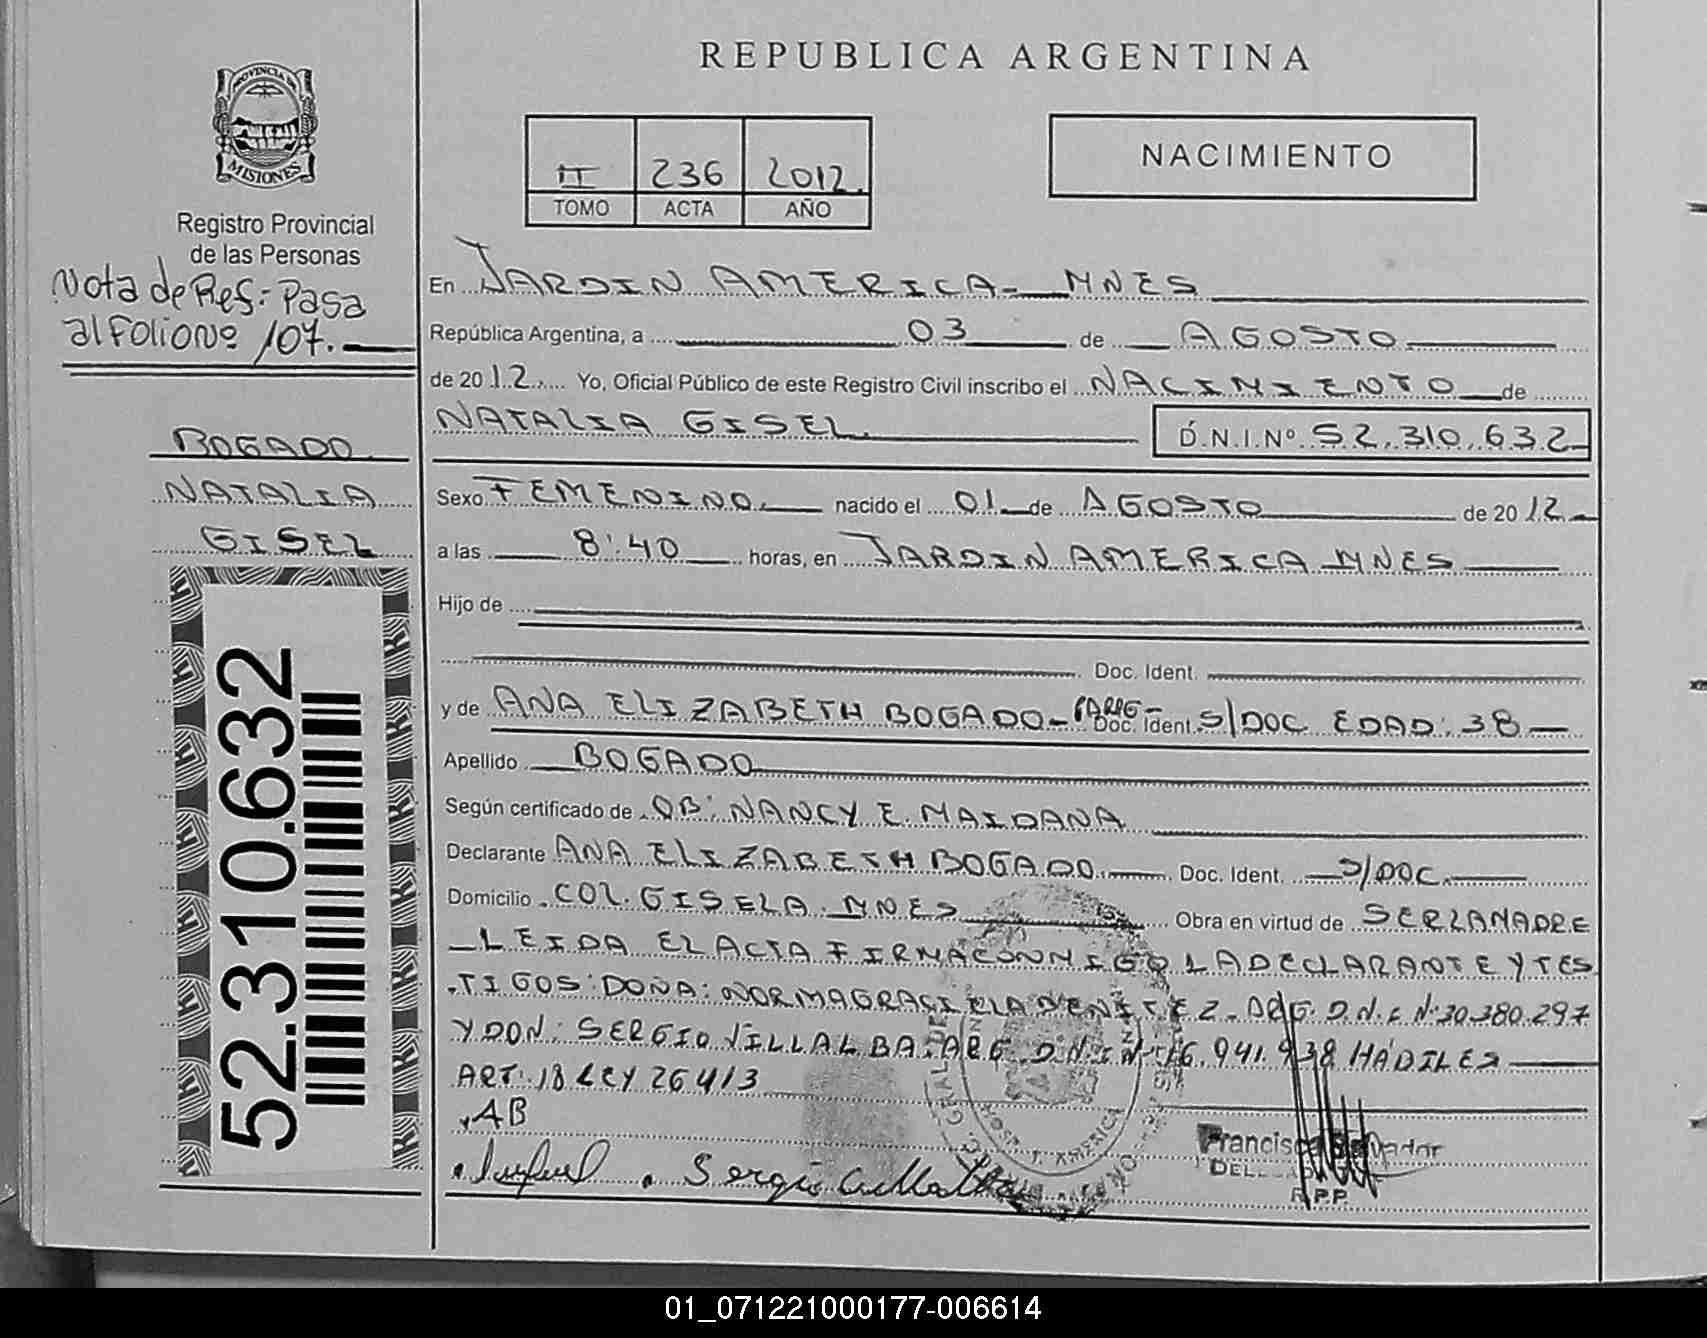 REPUBLICA ARGENTINA
PROVINCIA DE
MISIONES
Registro Provincial
de las Personas
Nota de Ref: Pasa
al Folio Nº 107.
BOGADO
NATALIA
GISEL
52.310.632
II 236 2012
TOMO ACTA AÑO
NACIMIENTO
En JARDIN AMERICA - MNES
República Argentina, a 03 de AGOSTO
de 2012. Yo, Oficial Público de este Registro Civil inscribo el NACIMIENTO de
NATALIA GISEL D.N.I.Nº 52.310.632
Sexo FEMENINO nacido el 01 de AGOSTO de 2012
a las 8:40 horas, en JARDIN AMERICA MNES
Hijo de
Doc. Ident.
y de ANA ELIZABETH BOGADO - Doc. Ident. S/DOC EDAD: 38
Apellido BOGADO
Según certificado de OB: NANCY E. MAIDANA
Declarante ANA ELIZABETH BOGADO Doc. Ident. S/DOC.
Domicilio COL. GISELA. MNES Obra en virtud de SER LA MADRE
LEIDA EL ACTA FIRMA CONMIGO LA DECLARANTE Y TES
TIGOS: DOÑA: NORMA GRACIELA BENITEZ. ARG. D.N.I Nº 30.380.297
Y DON: SERGIO VILLALBA. ARG. D.N.I Nº 16.941.938 HÁBILES
ART. 18 LEY 26413
AB
Sergio
Francisco Salvador
DEL.
R.P.P.
01_071221000177-006614